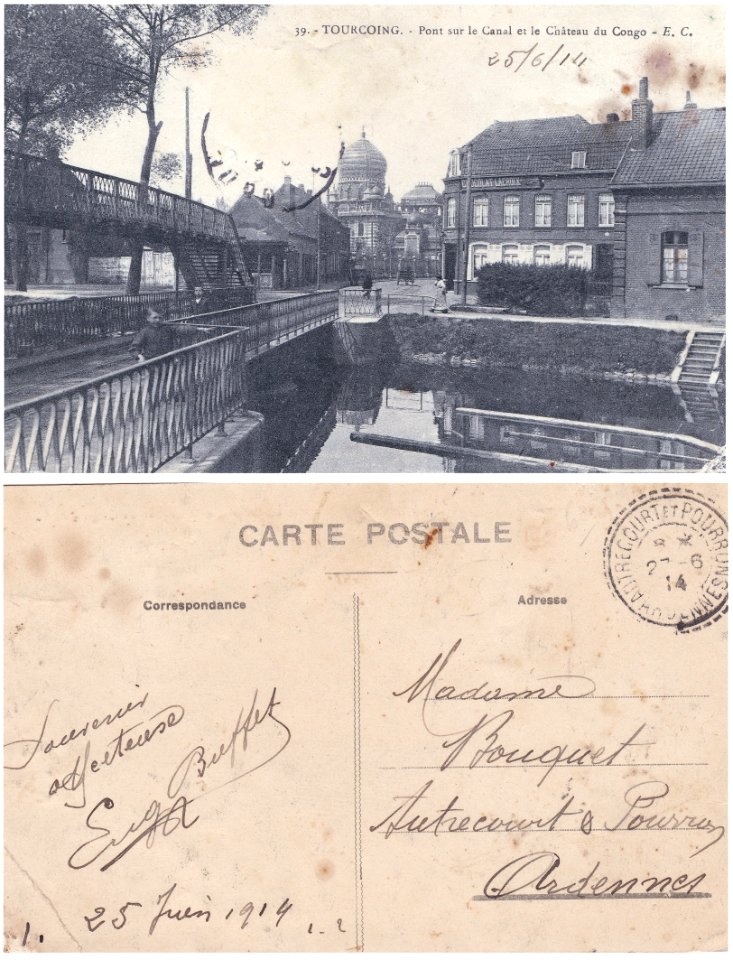 39. - TOURCOING. - Pont sur le Canal et le Château du Congo - E. C.
25/6/14
CARTE POSTALE
Correspondance
Adresse
AUTRECOURT ET POURRON
ARDENNES
8 *
27-6
14
Souvenir
affecteuse
Buffet
25 Juin 1914
Madame
Bouquet
Autrecourt & Pourron
Ardennes
1.